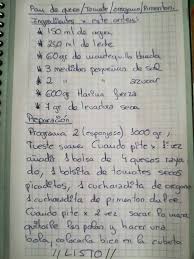 Pan de queso/Tomate/oregano/Pimenton:
Ingredientes x este orden:
* 150 ml de agua
* 250 ml de leche
* 60 gr de mantequilla
* 3 medidas pequeñas de sal
* 2 " " azucar
* 600gr Harina fuerza
* 7 gr de levadura seca
Preparación
Programa 2 (esponjoso) 1000 gr,
Tueste suave. Cuando pite x 1ª vez
añadir 1 bolsa de 4 quesos rayado
, 1 bolsita de tomates secos
picaditos, 1 cucharadita de oregano
1 cucharadita de pimenton dulce.
Cuando pite x 2 vez, sacar la masa
quitarle las palas y hacer una
bola, colocarla bien en la cubeta
¡¡LISTO!!